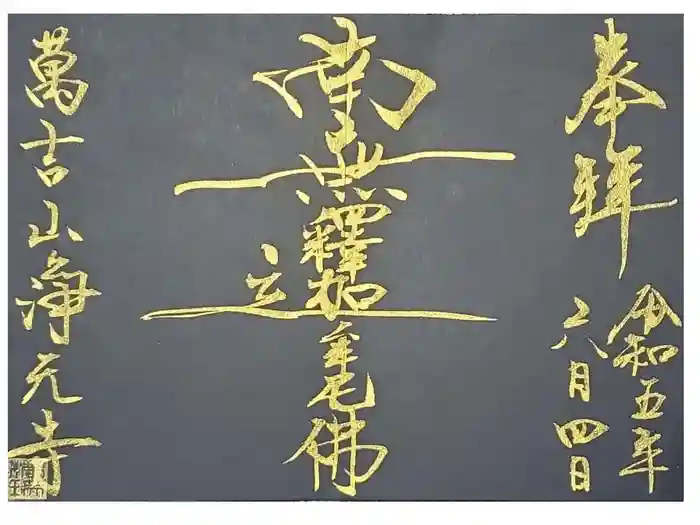 奉拝
令和五年
六月四日
南無釋迦牟尼佛
萬吉山浄元寺